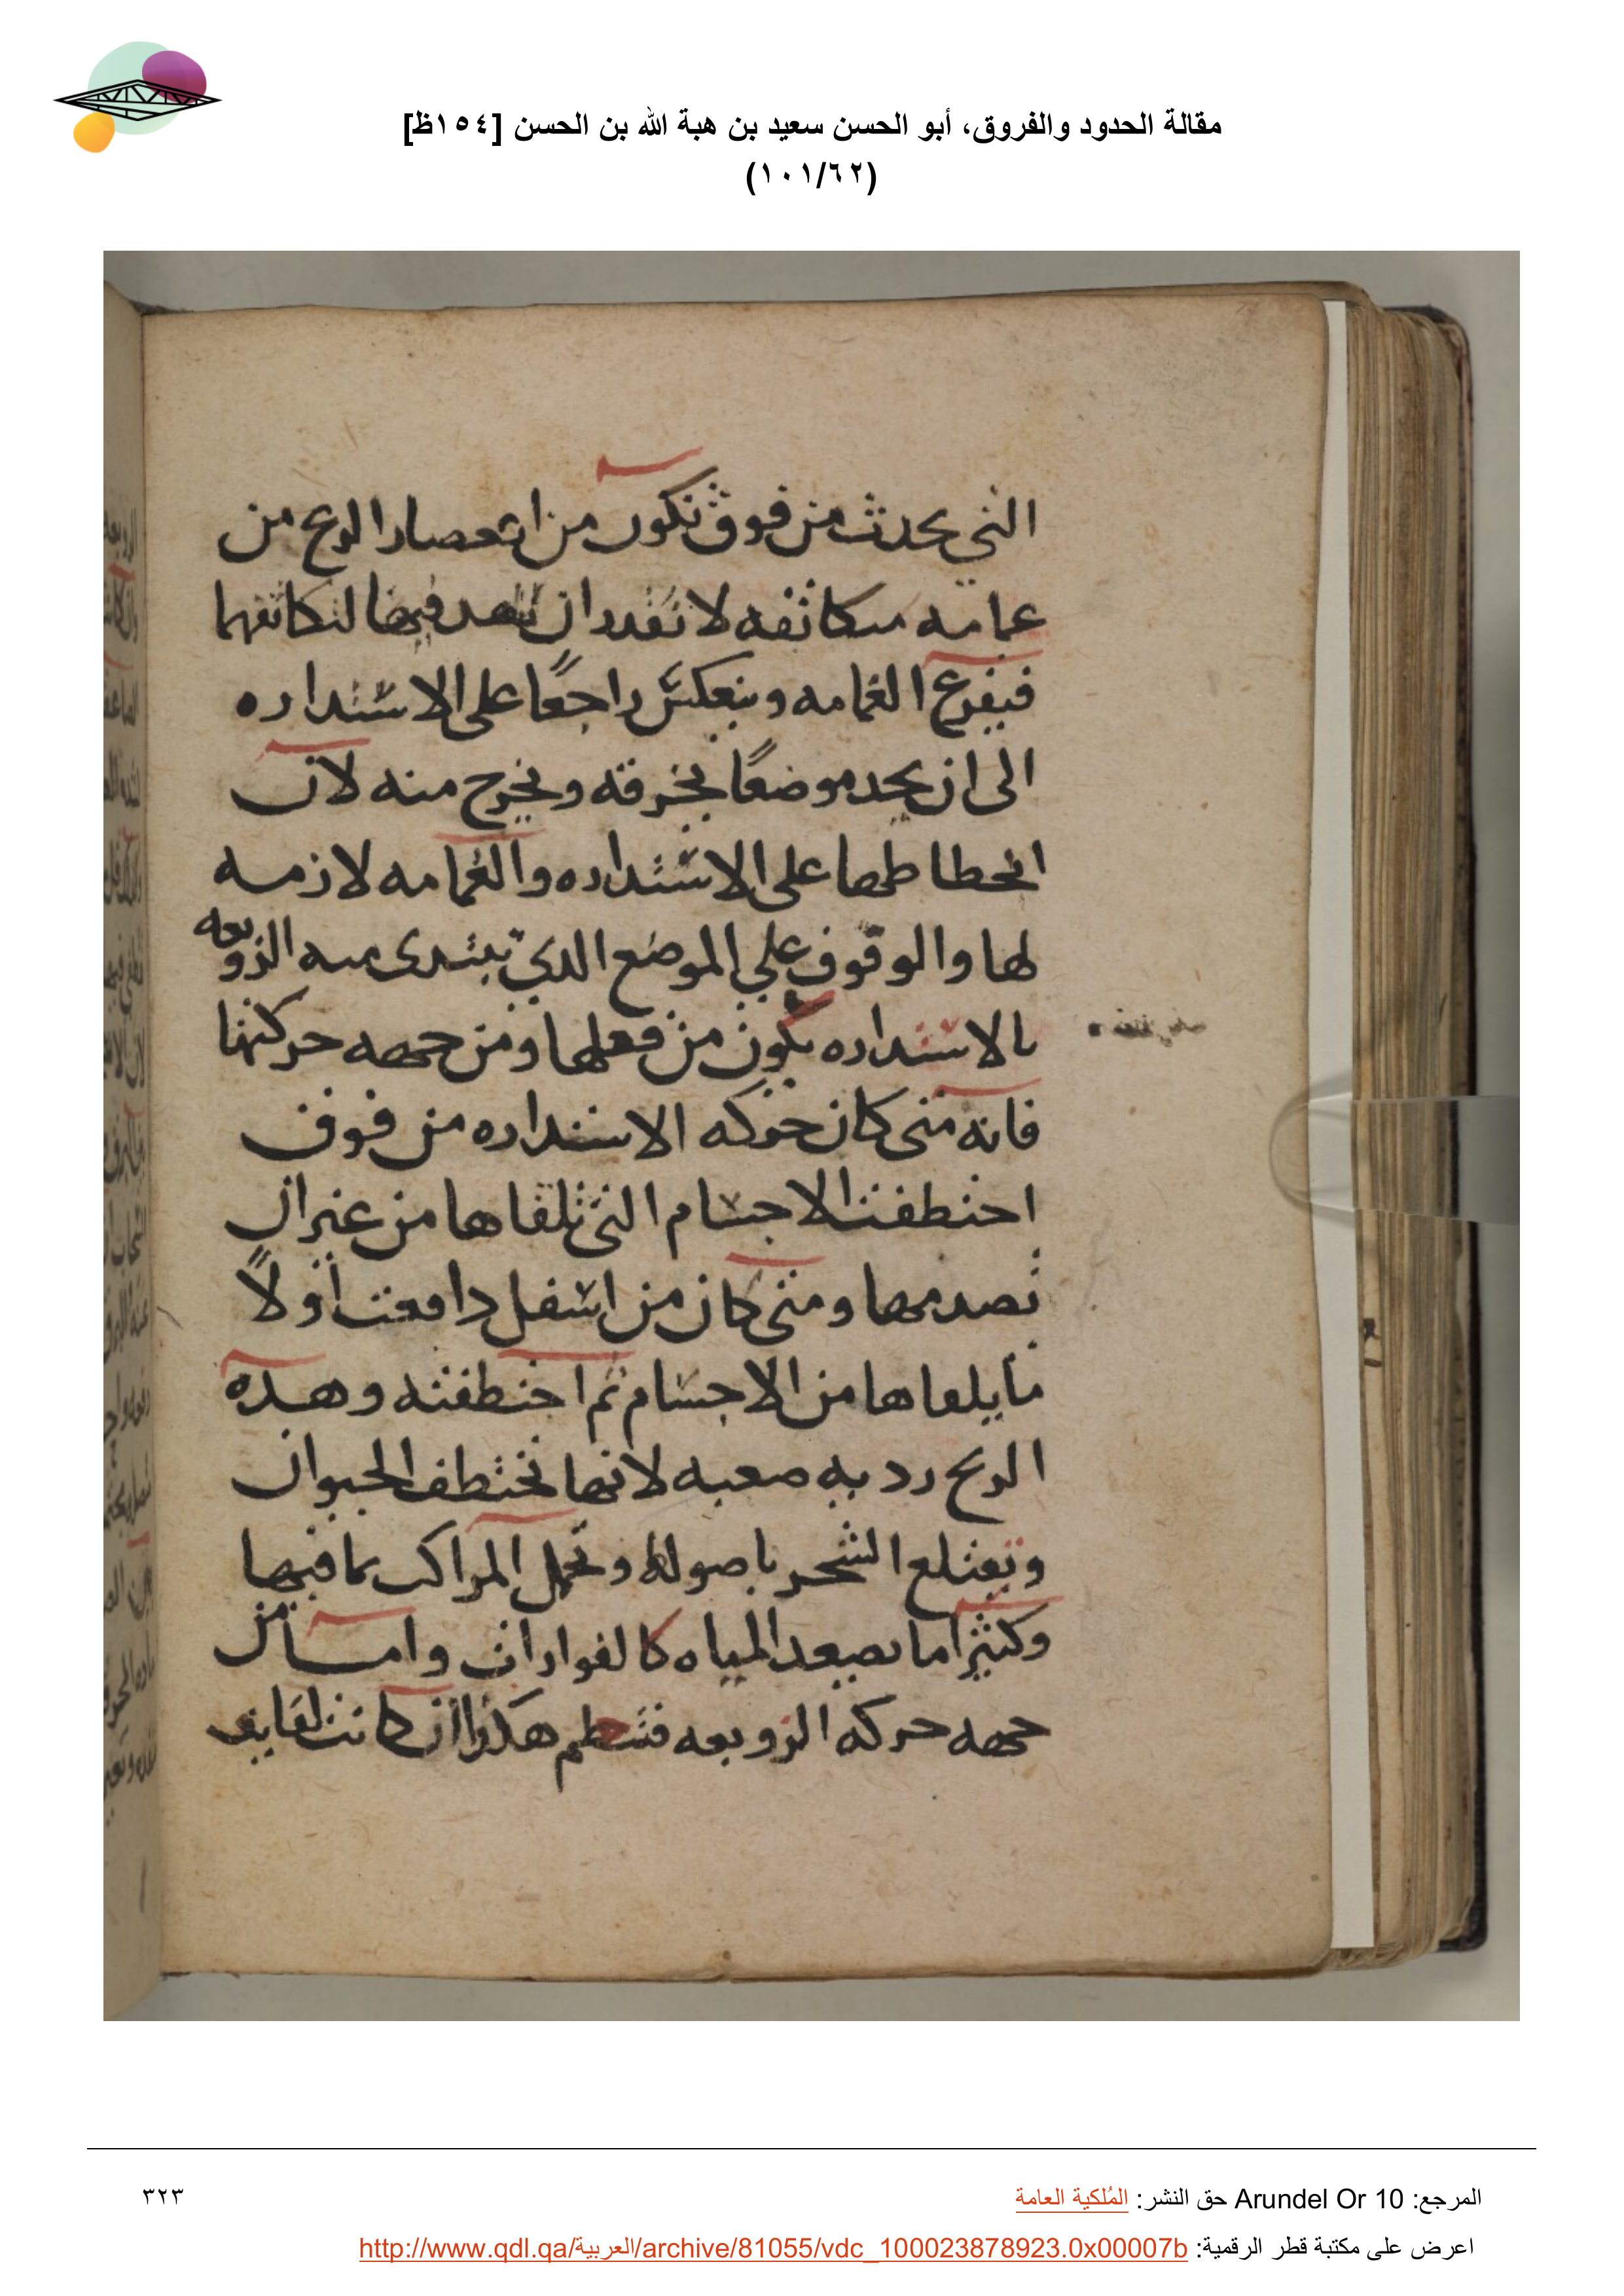 مقالة الحدود والفروق، أبو الحسن سعيد بن هبة الله بن الحسن [١٥٤ظ]
(١٠١/٦٢)
التي يحدث من فوق تكون من انعصار الريح من
غمامه متكاثفه لا تقدر ان تنفد فيها لتكاثفها
فيقرع الغمامه وينعكس راجعًا على الاستداره
الى ان يجد موضعًا يخرقه ويخرج منه لان
انحطاطها على الاستداره والغمامه لازمه
لها والوقوف علي الموضع الدي تبتدى منه الزوبعه
بالاستداره يكون من فعلها ومن جهه حركتها
فانه متى كان حركه الاستداره من فوق
اختطفت الاجسام التي تلقاها من غير ان
تصدمها ومتى كان من اسفل دافعت أولاً
ما يلقاها من الاجسام ثم اختطفته وهده
الريح رديه صعبه لانها تختطف الحيوان
وتقتلع الشجر باصوله وتحمل المراكب بما فيها
وكثيرا ما يصعد المياه كالفوارات واما من
جهه حركه الزوبعه هكذا ان كانت
المرجع: Arundel Or 10 حق النشر: المُلكية العامة
٣٢٣
اعرض على مكتبة قطر الرقمية: http://www.qdl.qa/العربية/archive/81055/vdc_100023878923.0x00007b